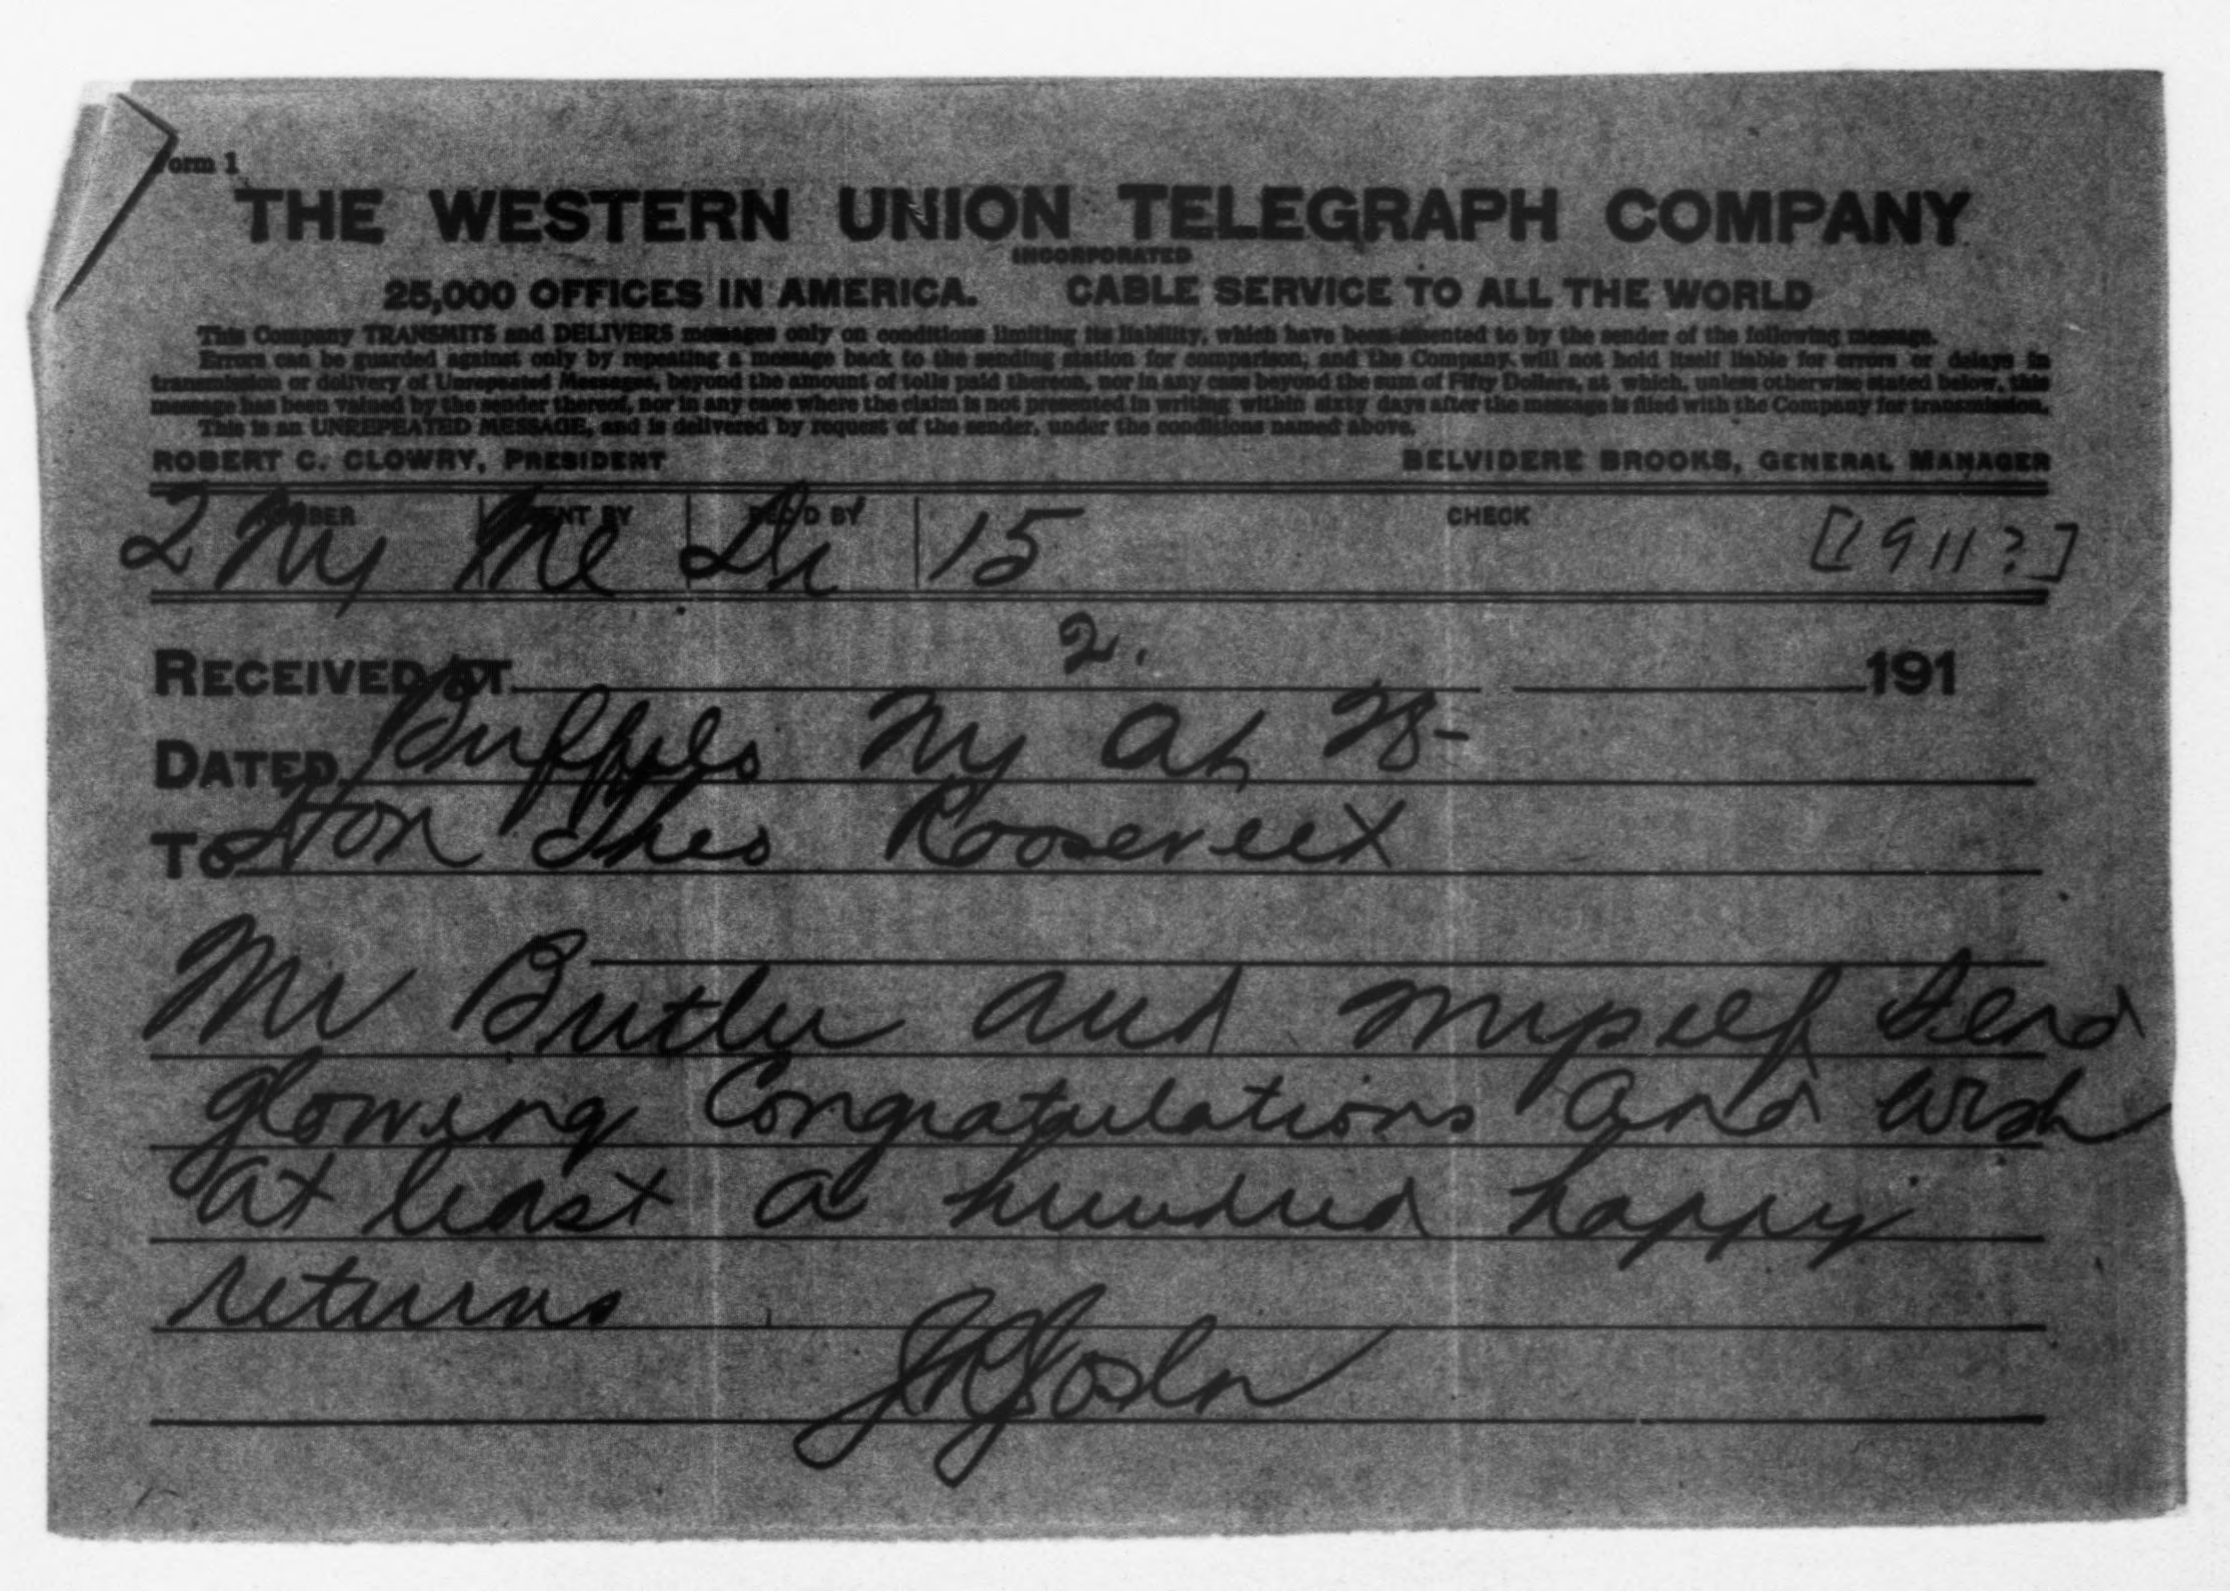 Form 1
THE WESTERN UNION TELEGRAPH COMPANY
INCORPORATED
25,000 OFFICES IN AMERICA. CABLE SERVICE TO ALL THE WORLD
This Company TRANSMITS and DELIVERS messages only on conditions limiting its liability, which have been assented to by the sender of the following message.
Errors can be guarded against only by repeating a message back to the sending station for comparison, and the Company will not hold itself liable for errors or delays in
transmission or delivery of Unrepeated Messages, beyond the amount of tolls paid thereon, nor in any case beyond the sum of Fifty Dollars, at which, unless otherwise stated below, this
message has been valued by the sender thereof, nor in any case where the claim is not presented in writing within sixty days after the message is filed with the Company for transmission.
This is an UNREPEATED MESSAGE, and is delivered by request of the sender, under the conditions named above.
ROBERT C. CLOWRY, PRESIDENT BELVIDERE BROOKS, GENERAL MANAGER
NUMBER SENT BY REC'D BY CHECK
2 Ny 15 [1911?]
2.
RECEIVED AT 191
DATED Buffalo Ny
TO Hon Theo Roosevelt
Mr Butler and myself send
glowing Congratulations and wish
at least a hundred happy
returns